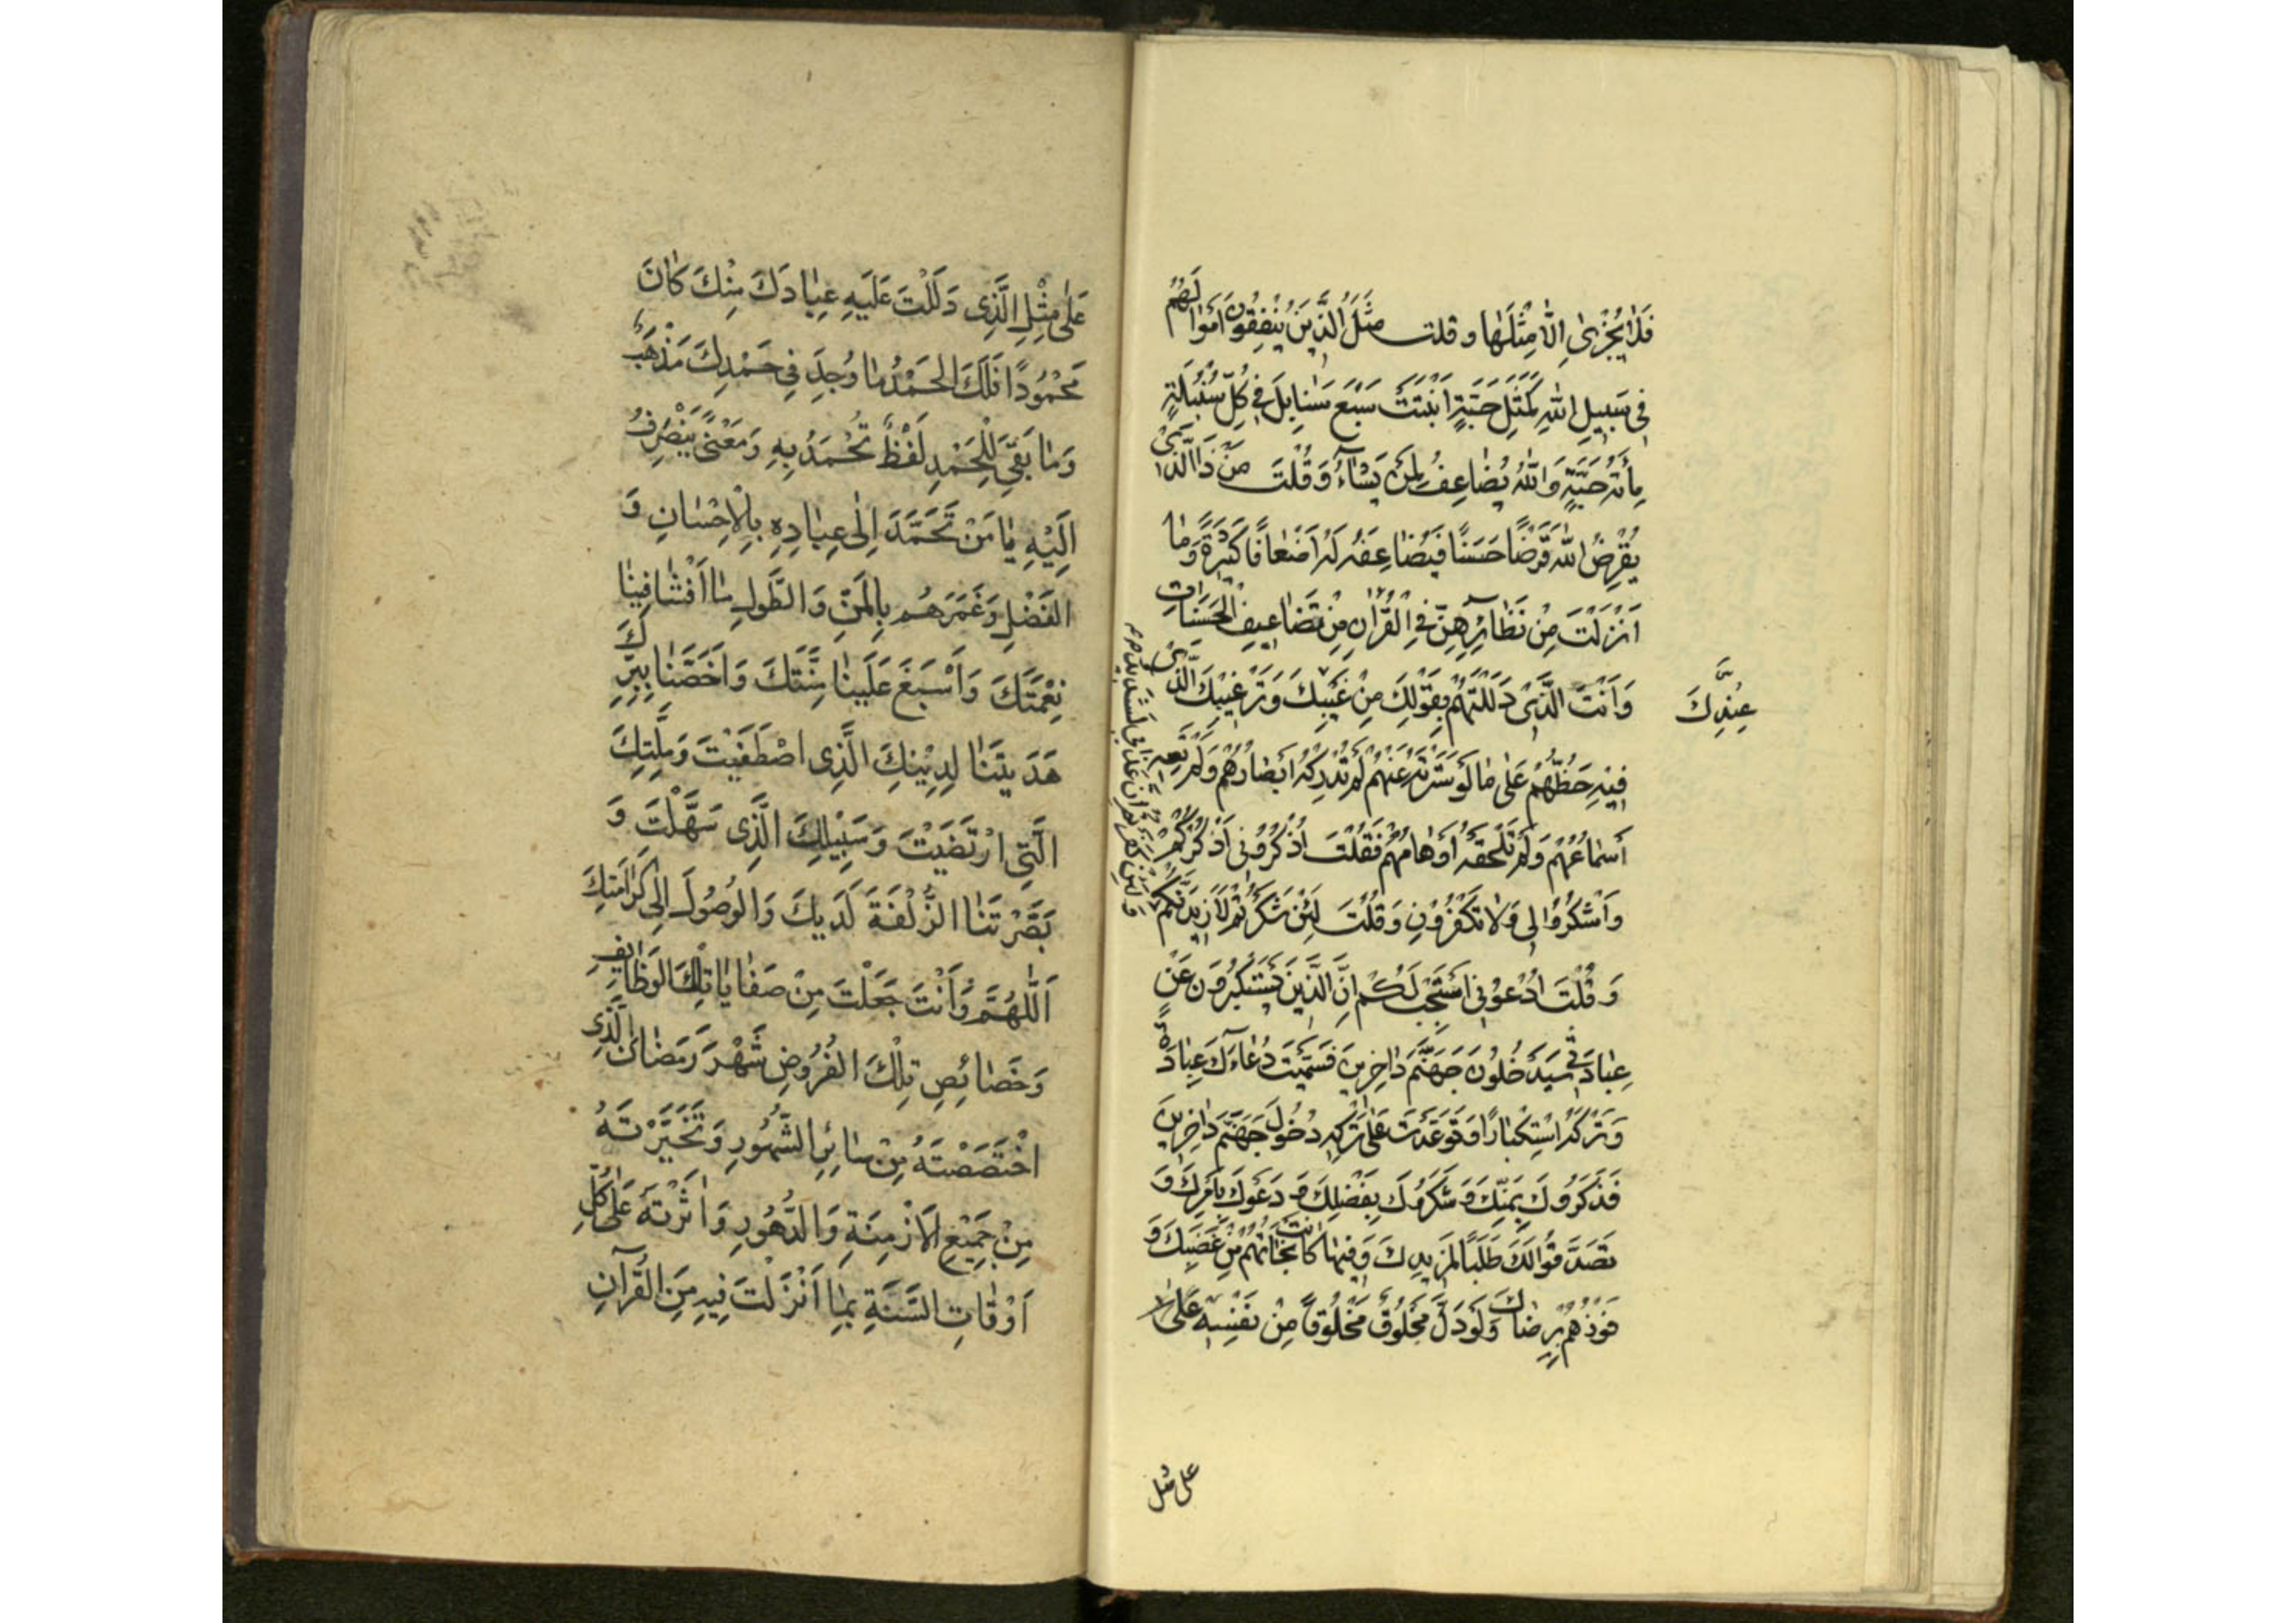 فَلَا يُجْزىٰ اِلَّا مِثْلَهٰا و قلت مَثَلُ الَّذِيْنَ يُنْفِقُوْنَ اَمْوٰالَهُمْ
فِى سَبِيلِ اللهِ كَمَثَلِ حَبَّةٍ اَنْبَتَتْ سَبْعَ سَنٰابِلَ فِى كُلِّ سُنْبُلَةٍ
مِأَتهُ حَبَّةٍ وَاللهُ يُضٰاعِفُ لِمَنْ يَشٰآءُ وَقُلْتَ مَنْ ذَا الَّذِىْ
يُقْرِضُ اللهَ قَرْضًا حَسَنًا فَيُضٰاعِفَهُ لَهُ اَضْعٰافًا كَثِيْرَةً وَمٰا
اَنْزَلْتَ مِنْ نَظٰائِرِهِنَّ فِى الْقُرْاٰنِ مِنْ تَضٰاعِيفِ الْحَسَنٰاتِ
وَاَنْتَ الَّذِىْ دَلَلْتَهُمْ بِقَوْلِكَ مِنْ غَيْبِكَ وَتَرْغِيْبِكَ الَّذِىْ
عِنْدِكَ
فِيْهِ حَظُّهُمْ عَلٰى مٰا لَوْ سَتَرْتَهُ عَنْهُمْ لَمْ تُدْرِكْهُ اَبْصٰارُهُمْ وَلَمْ تَعِهِ
اَسْمٰاعُهُمْ وَلَمْ تَلْحَقْهُ اَوْهٰامُهُمْ فَقُلْتَ اذْكُرُوْنِى اَذْكُرْكُمْ
وَاشْكُرُوْا لِى وَلَا تَكْفُرُوْنِ وَقُلْتَ لَئِنْ شَكَرْتُمْ لَاَزِيْدَنَّكُمْ
وَلَئِنْ كَفَرْتُمْ اِنَّ عَذَابِى لَشَدِيدٌ
وَقُلْتَ ادْعُوْنِى اَسْتَجِبْ لَكُمْ اِنَّ الَّذِيْنَ يَسْتَكْبِرُوْنَ عَنْ
عِبٰادَتِى سَيَدْخُلُوْنَ جَهَنَّمَ دٰاخِرِيْنَ فَسَمَّيْتَ دُعٰاءَكَ عِبٰادَةً
وَتَرْكَهُ اسْتِكْبٰارًا وَتَوَعَّدْتَ عَلٰى تَرْكِهِ دُخُوْلَ جَهَنَّمَ دٰاخِرِيْنَ
فَذَكَرُوْكَ بِمَنِّكَ وَشَكَرُوْكَ بِفَضْلِكَ وَ دَعَوْكَ بِاَمْرِكَ وَ
تَصَدَّقُوْا لَكَ طَلَبًا لِمَزِيْدِكَ وَفِيْهٰا كٰانَتْ نَجٰاتُهُمْ مِنْ غَضَبِكَ وَ
فَوْزُهُمْ بِرِضٰاكَ وَلَوْ دَلَّ مَخْلُوْقٌ مَخْلُوْقًا مِنْ نَفْسِهِ عَلٰى
على مثل
عَلٰى مِثْلِ الَّذِى دَلَلْتَ عَلَيْهِ عِبٰادَكَ مِنْكَ كٰانَ
مَحْمُوْدًا فَلَكَ الْحَمْدُ مٰا وُجِدَ فِى حَمْدِكَ مَذْهَبٌ
وَمٰا بَقِىَ لِلْحَمْدِ لَفْظٌ تُحْمَدُ بِهِ وَمَعْنًى يَنْصَرِفُ
اِلَيْهِ يٰا مَنْ تَحَمَّدَ اِلٰى عِبٰادِهِ بِالْاِحْسٰانِ وَ
الْفَضْلِ وَغَمَرَهُمْ بِالْمَنِّ وَالطَّوْلِ مٰا اَفْشٰا فِيْنٰا
نِعْمَتَكَ وَاَسْبَغَ عَلَيْنٰا مِنَّتَكَ وَاَخَصَّنٰا بِبِرِّكَ
هَدَيْتَنٰا لِدِيْنِكَ الَّذِى اصْطَفَيْتَ وَمِلَّتِكَ
الَّتِى ارْتَضَيْتَ وَسَبِيْلِكَ الَّذِى سَهَّلْتَ وَ
بَصَّرْتَنٰا الزُّلْفَةَ لَدَيْكَ وَالْوُصُوْلَ اِلٰى كَرٰامَتِكَ
اَللّٰهُمَّ وَاَنْتَ جَعَلْتَ مِنْ صَفٰايٰا تِلْكَ الْوَظٰايِفِ
وَخَصٰائِصِ تِلْكَ الْفُرُوْضِ شَهْرَ رَمَضٰانَ الَّذِى
اخْتَصَصْتَهُ مِنْ سٰائِرِ الشُّهُوْرِ وَتَخَيَّرْتَهُ
مِنْ جَمِيْعِ الْاَزْمِنَةِ وَالدُّهُوْرِ وَاٰثَرْتَهُ عَلٰى كُلِّ
اَوْقٰاتِ السَّنَةِ بِمٰا اَنْزَلْتَ فِيْهِ مِنَ الْقُرْآنِ